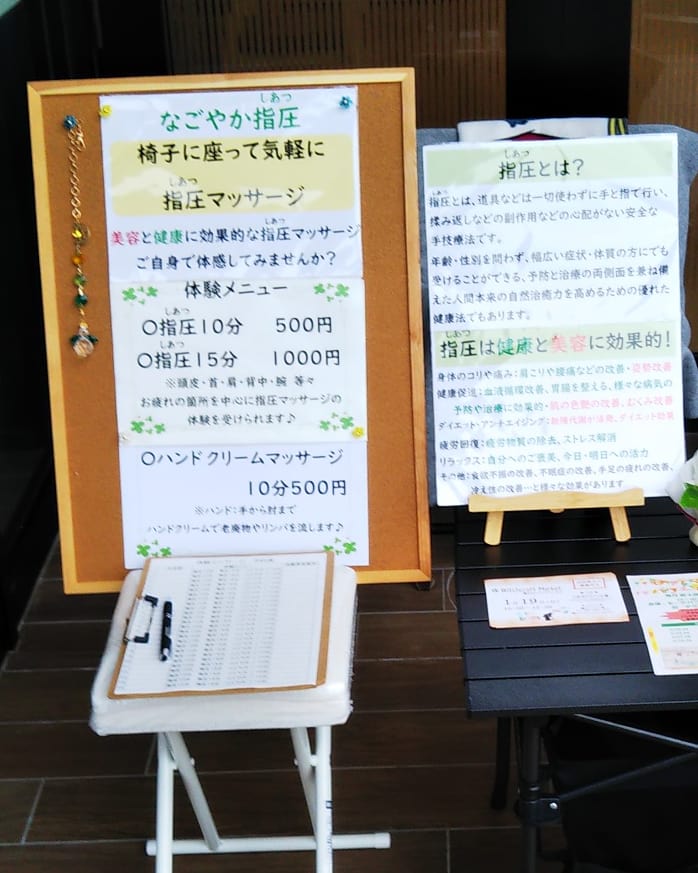 しあつ
なごやか指圧
椅子に座って気軽に
しあつ
指圧マッサージ
しあつ
美容と健康に効果的な指圧マッサージ
ご自身で体感してみませんか？
体験メニュー
しあつ
〇指圧１０分　５００円
しあつ
〇指圧１５分　１０００円
※頭皮・首・肩・背中・腕 等々
お疲れの箇所を中心に指圧マッサージの
体験を受けられます♪
〇ハンドクリームマッサージ
１０分５００円
※ハンド：手から肘まで
ハンドクリームで老廃物やリンパを流します♪
しあつ
指圧とは？
しあつ
指圧とは、道具などは一切使わずに手と指で行い、
揉み返しなどの副作用などの心配がない安全な
手技療法です。
年齢・性別を問わず、幅広い症状・体質の方にでも
受けることができる、予防と治療の両側面を兼ね備
えた人間本来の自然治癒力を高めるための優れた
健康法でもあります。
しあつ
指圧は健康と美容に効果的！
身体のコリや痛み：肩こりや腰痛などの改善・姿勢改善
健康促進：血液循環改善、胃腸を整える、様々な病気の
予防や治療に効果的・肌の色艶の改善、むくみ改善
ダイエット・アンチエイジング：新陳代謝が活発、ダイエット効果
疲労回復：疲労物質の除去、ストレス解消
リラックス：自分へのご褒美、今日・明日への活力
その他：食欲不振の改善、不眠症の改善、手足の疲れの改善、
冷え性の改善…と様々な効果があります